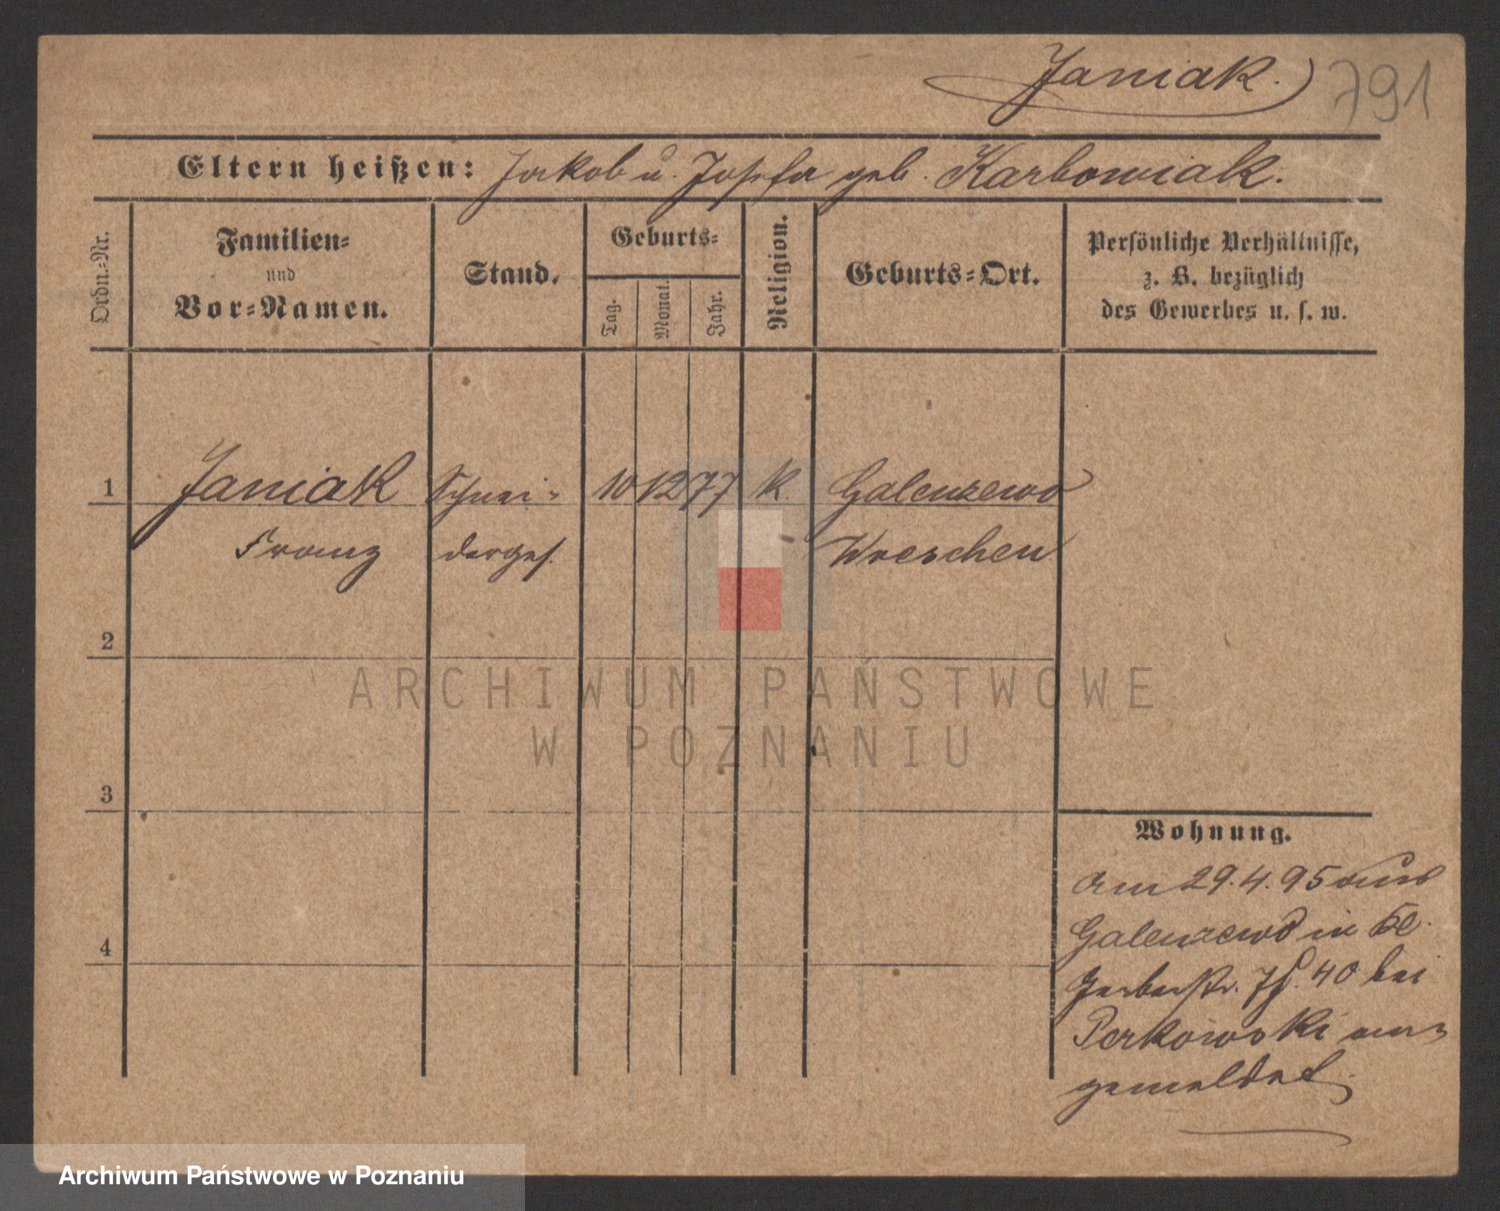 Janiak. 791
Eltern heißen: Jakob u. Josefa geb. Karbowiak.
Ordn.-Nr.
Familien-
und
Vor-Namen.
Stand.
Geburts-
Tag.
Monat.
Jahr.
Religion.
Geburts-Ort.
Persönliche Verhältnisse,
z. B. bezüglich
des Gewerbes u. s. w.
1 Janiak Schnei- 10 12 77 k. Galenzewo
Franz derges. Wreschen
2
ARCHIWUM PAŃSTWOWE
W POZNANIU
3
Wohnung.
Am 29.4.95 aus
Galenzewo in
4
Gerberstr. 40 bei
Perkowski an-
gemeldet.
Archiwum Państwowe w Poznaniu